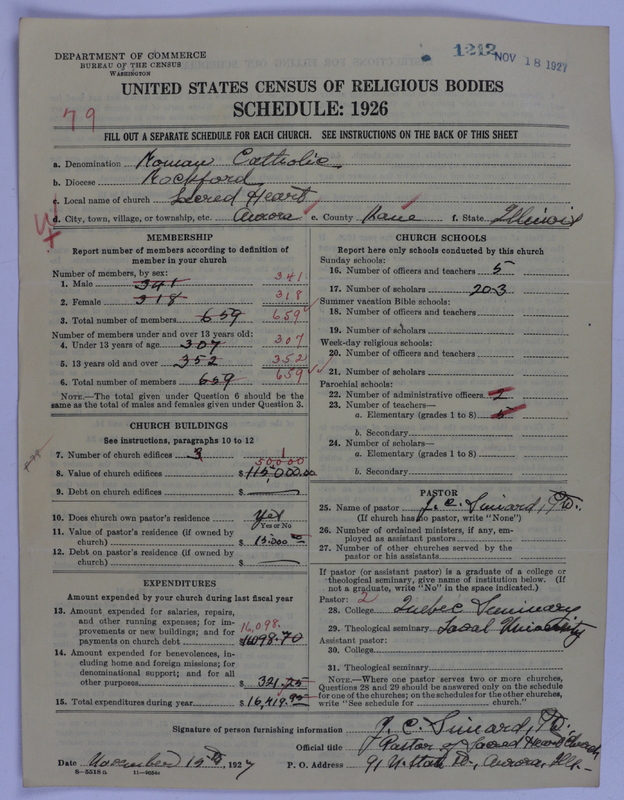 DEPARTMENT OF COMMERCE
BUREAU OF THE CENSUS
WASHINGTON
1212 NOV 18 1927
UNITED STATES CENSUS OF RELIGIOUS BODIES
SCHEDULE: 1926
79
FILL OUT A SEPARATE SCHEDULE FOR EACH CHURCH. SEE INSTRUCTIONS ON THE BACK OF THIS SHEET
a. Denomination Roman Catholic
b. Diocese Rockford
c. Local name of church Sacred Heart
d. City, town, village, or township, etc. Aurora e. County Kane f. State Illinois
MEMBERSHIP
Report number of members according to definition of
member in your church
Number of members, by sex:
1. Male 341 341
2. Female 318 318
3. Total number of members 659 659
Number of members under and over 13 years old:
4. Under 13 years of age 307 307
5. 13 years old and over 352 352
6. Total number of members 659 659
NOTE.—The total given under Question 6 should be the
same as the total of males and females given under Question 3.
CHURCH BUILDINGS
See instructions, paragraphs 10 to 12
7. Number of church edifices 3 1
50,000
8. Value of church edifices $115,000.00
9. Debt on church edifices $
10. Does church own pastor's residence Yes
Yes or No
11. Value of pastor's residence (if owned by
church) $15.000
12. Debt on pastor's residence (if owned by
church) $
EXPENDITURES
Amount expended by your church during last fiscal year
13. Amount expended for salaries, repairs,
and other running expenses; for im-
provements or new buildings; and for
payments on church debt 16,098. $16098.70
14. Amount expended for benevolences, in-
cluding home and foreign missions; for
denominational support; and for all
other purposes $321.25
15. Total expenditures during year $16,419.95
CHURCH SCHOOLS
Report here only schools conducted by this church
Sunday schools:
16. Number of officers and teachers 5
17. Number of scholars 203
Summer vacation Bible schools:
18. Number of officers and teachers
19. Number of scholars
Week-day religious schools:
20. Number of officers and teachers
21. Number of scholars
Parochial schools:
22. Number of administrative officers 2
23. Number of teachers—
a. Elementary (grades 1 to 8) 5
b. Secondary
24. Number of scholars—
a. Elementary (grades 1 to 8)
b. Secondary
PASTOR
25. Name of pastor J. C. Simard,
(If church has no pastor, write "None")
26. Number of ordained ministers, if any, em-
ployed as assistant pastors
27. Number of other churches served by the
pastor or his assistants
If pastor (or assistant pastor) is a graduate of a college or
theological seminary, give name of institution below. (If
not a graduate, write "No" in the space indicated.)
Pastor: 2
28. College Quebec Seminary
29. Theological seminary Laval University
Assistant pastor:
30. College
31. Theological seminary
NOTE.—Where one pastor serves two or more churches,
Questions 28 and 29 should be answered only on the schedule
for one of the churches; on the schedules for the other churches,
write "See schedule for church."
Signature of person furnishing information J. C. Simard,
Official title Pastor of Sacred Heart Church
Date November 15th, 1927 P. O. Address 91 N. State St., Aurora, Ill.
S-5518 a 11-9654a